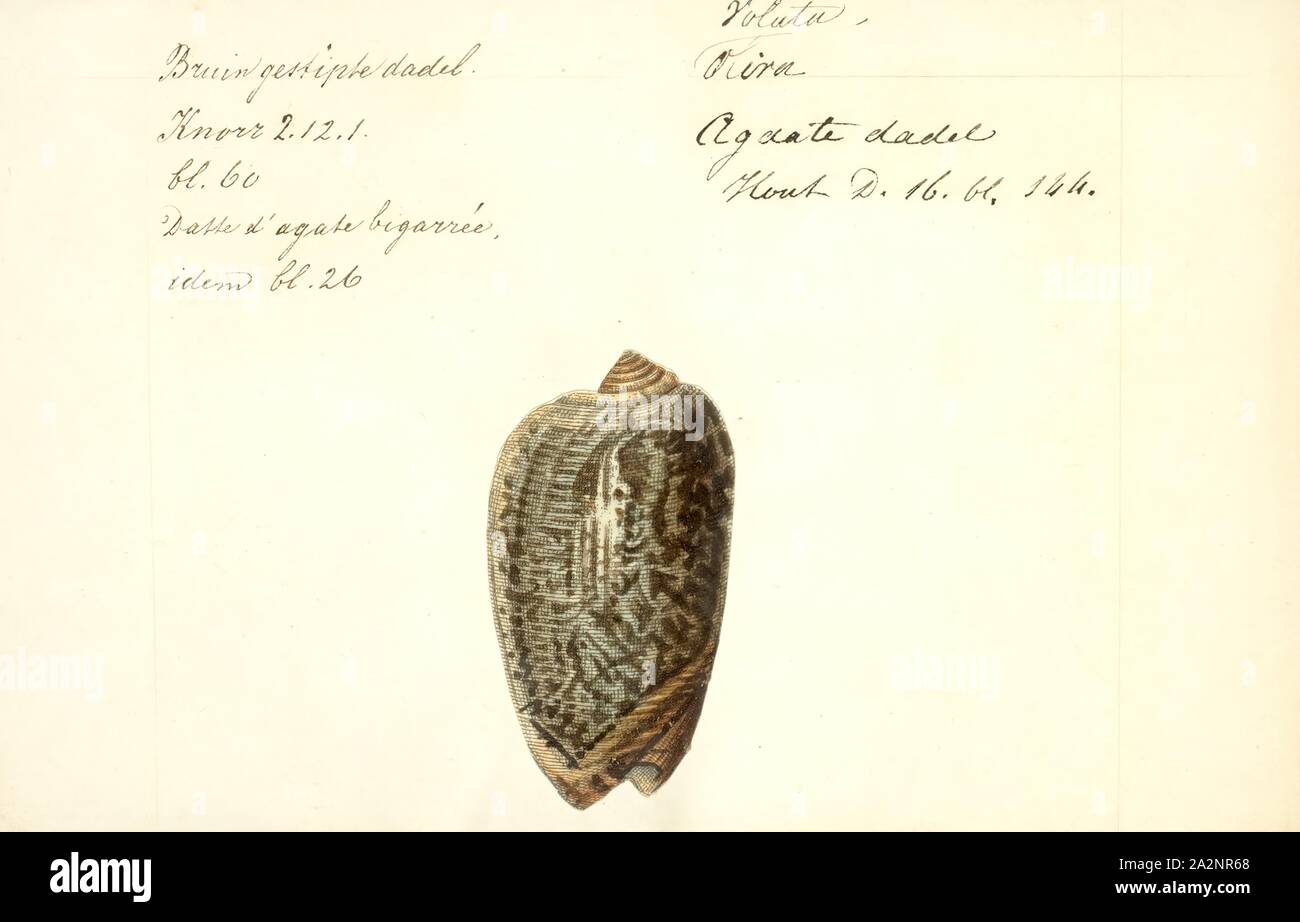 Bruin gestipte dadel.
Knorr 2.12.1.
bl. 60
Datte d'agate bigarrée,
idem bl. 26
Voluta,
Agaate dadel
Hout D. 16. bl. 144.
alamy
Image ID: 2A2NR68
www.alamy.com